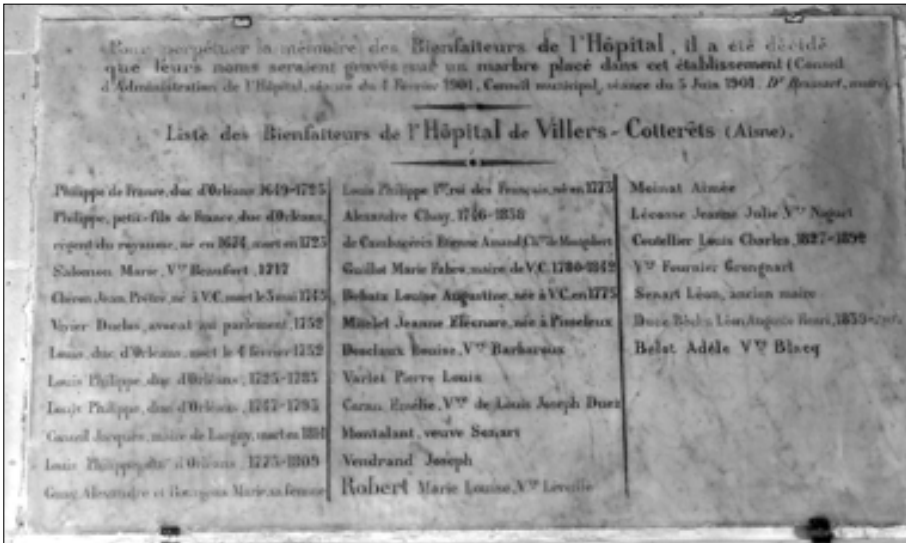 Pour perpétuer la mémoire des Bienfaiteurs de l'Hôpital, il a été décidé
que leurs noms seraient gravés sur un marbre placé dans cet établissement (Conseil
d'Administration de l'Hôpital, séance du 4 Février 1901, Conseil municipal, séance du 5 Juin 1901. Dr
Liste des Bienfaiteurs de l'Hôpital de Villers-Cotterêts (Aisne).
Philippe de France, duc d'Orléans
Philippe, petit-fils de France, duc d'Orléans,
régent du royaume, né en 1674, mort en 1723
Salomon Marie, Vve Beaufort, 1717
Chéron Jean, Prêtre, né à V.C. mort le 5 mai 1745
Duclos, avocat au parlement, 1752
Louis, duc d'Orléans, mort le 4 février 1752
Louis Philippe, duc d'Orléans, 1725-1785
Louis Philippe, duc d'Orléans, 1747-1793
Jacques, maire de Largny, mort en
Louis Philippe d'Orléans, 1773-1809
Alexandre et Marie, sa femme
Louis Philippe Ier, roi des Français, né en 1773
Alexandre 1746-1838
de Cambacérès Etienne Amand,
Guillot Marie Fabre, maire de V.C. 1780-1842
Louise Augustine, née à V.C. en 1775
Jeanne Eléonore, née à Pisseleux
Desclaux Louise, Vve Barbaroux
Varlet Pierre Louis
Caran Emélie, Vve de Louis Joseph Duez
Montalant, veuve Senart
Vendrand Joseph
Robert Marie Louise, Vve Léveillé
Moinat Aimée
Lécosse Jeanne Julie Vve
Coutellier Louis Charles, 1827-1892
Vve Fournier Grongnart
Senart Léon, ancien maire
Léon, Auguste Henri, 1839
Belat Adèle Vve Blacq